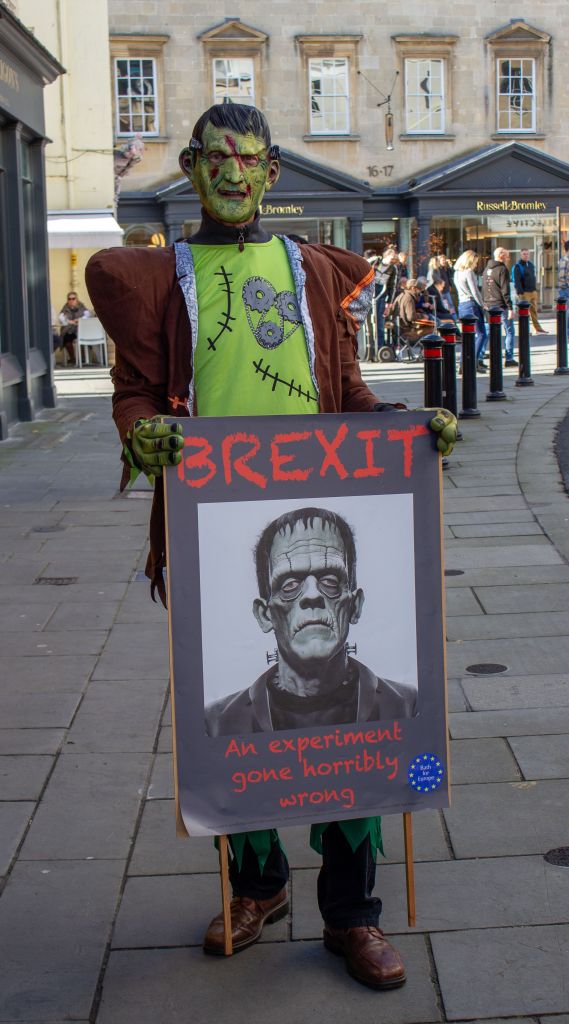 16-17
Russell & Bromley
BREXIT
An experiment
gone horribly
wrong
Bath
for
Europe